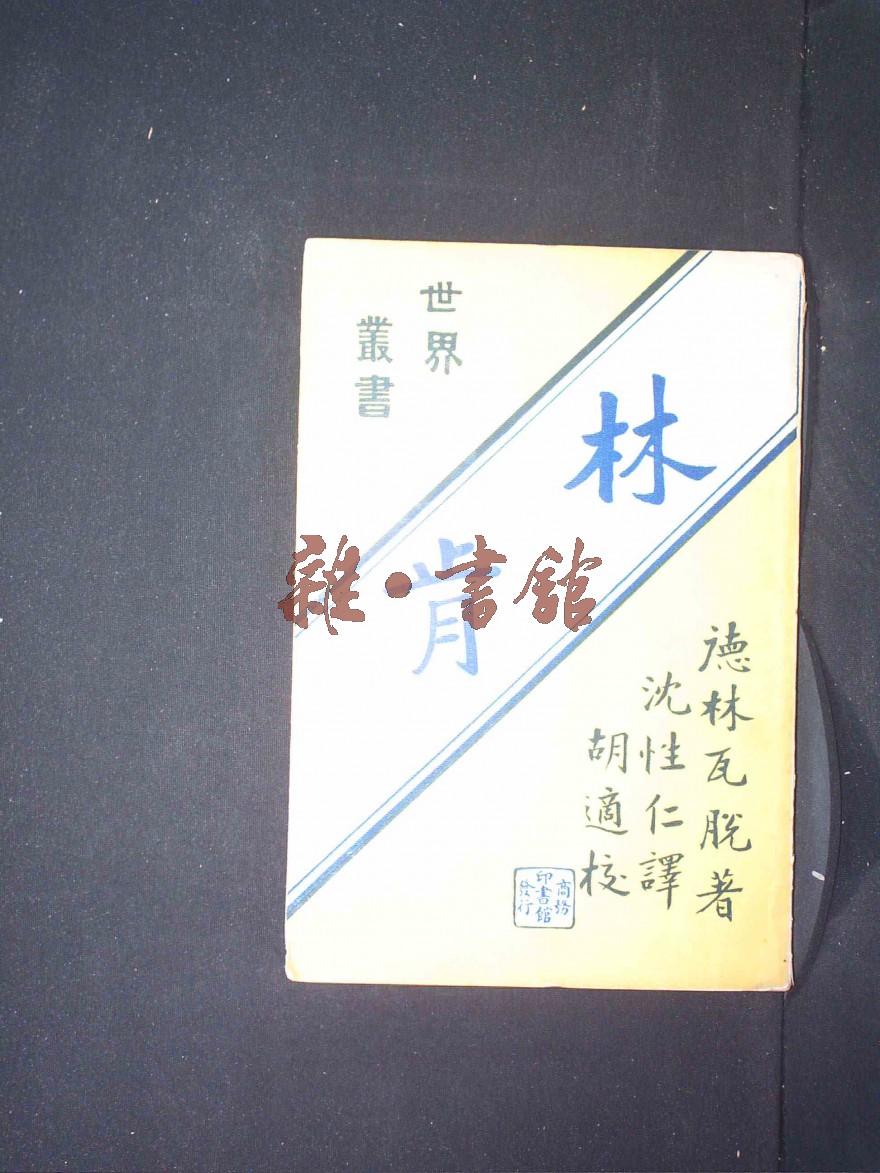 世界
叢書
林肯
德林瓦脫著
沈性仁譯
胡適校
商務
印書館
發行
雜·書館